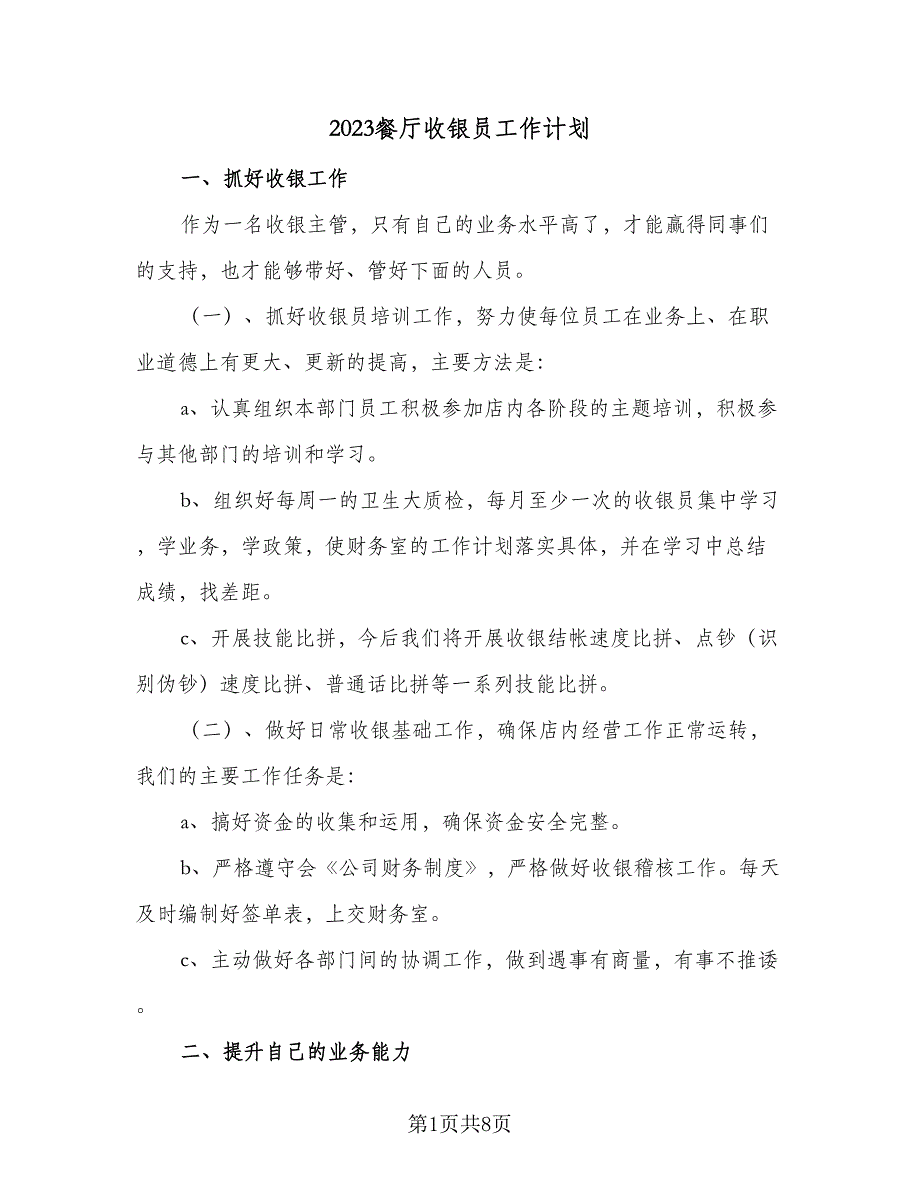 2023餐厅收银员工作计划
一、抓好收银工作
作为一名收银主管，只有自己的业务水平高了，才能赢得同事们
的支持，也才能够带好、管好下面的人员。
（一）、抓好收银员培训工作，努力使每位员工在业务上、在职
业道德上有更大、更新的提高，主要方法是：
a、认真组织本部门员工积极参加店内各阶段的主题培训，积极参
与其他部门的培训和学习。
b、组织好每周一的卫生大质检，每月至少一次的收银员集中学习
，学业务，学政策，使财务室的工作计划落实具体，并在学习中总结
成绩，找差距。
c、开展技能比拼，今后我们将开展收银结帐速度比拼、点钞（识
别伪钞）速度比拼、普通话比拼等一系列技能比拼。
（二）、做好日常收银基础工作，确保店内经营工作正常运转，
我们的主要工作任务是：
a、搞好资金的收集和运用，确保资金安全完整。
b、严格遵守会《公司财务制度》，严格做好收银稽核工作。每天
及时编制好签单表，上交财务室。
c、主动做好各部门间的协调工作，做到遇事有商量，有事不推诿
。
二、提升自己的业务能力
第1页共8页